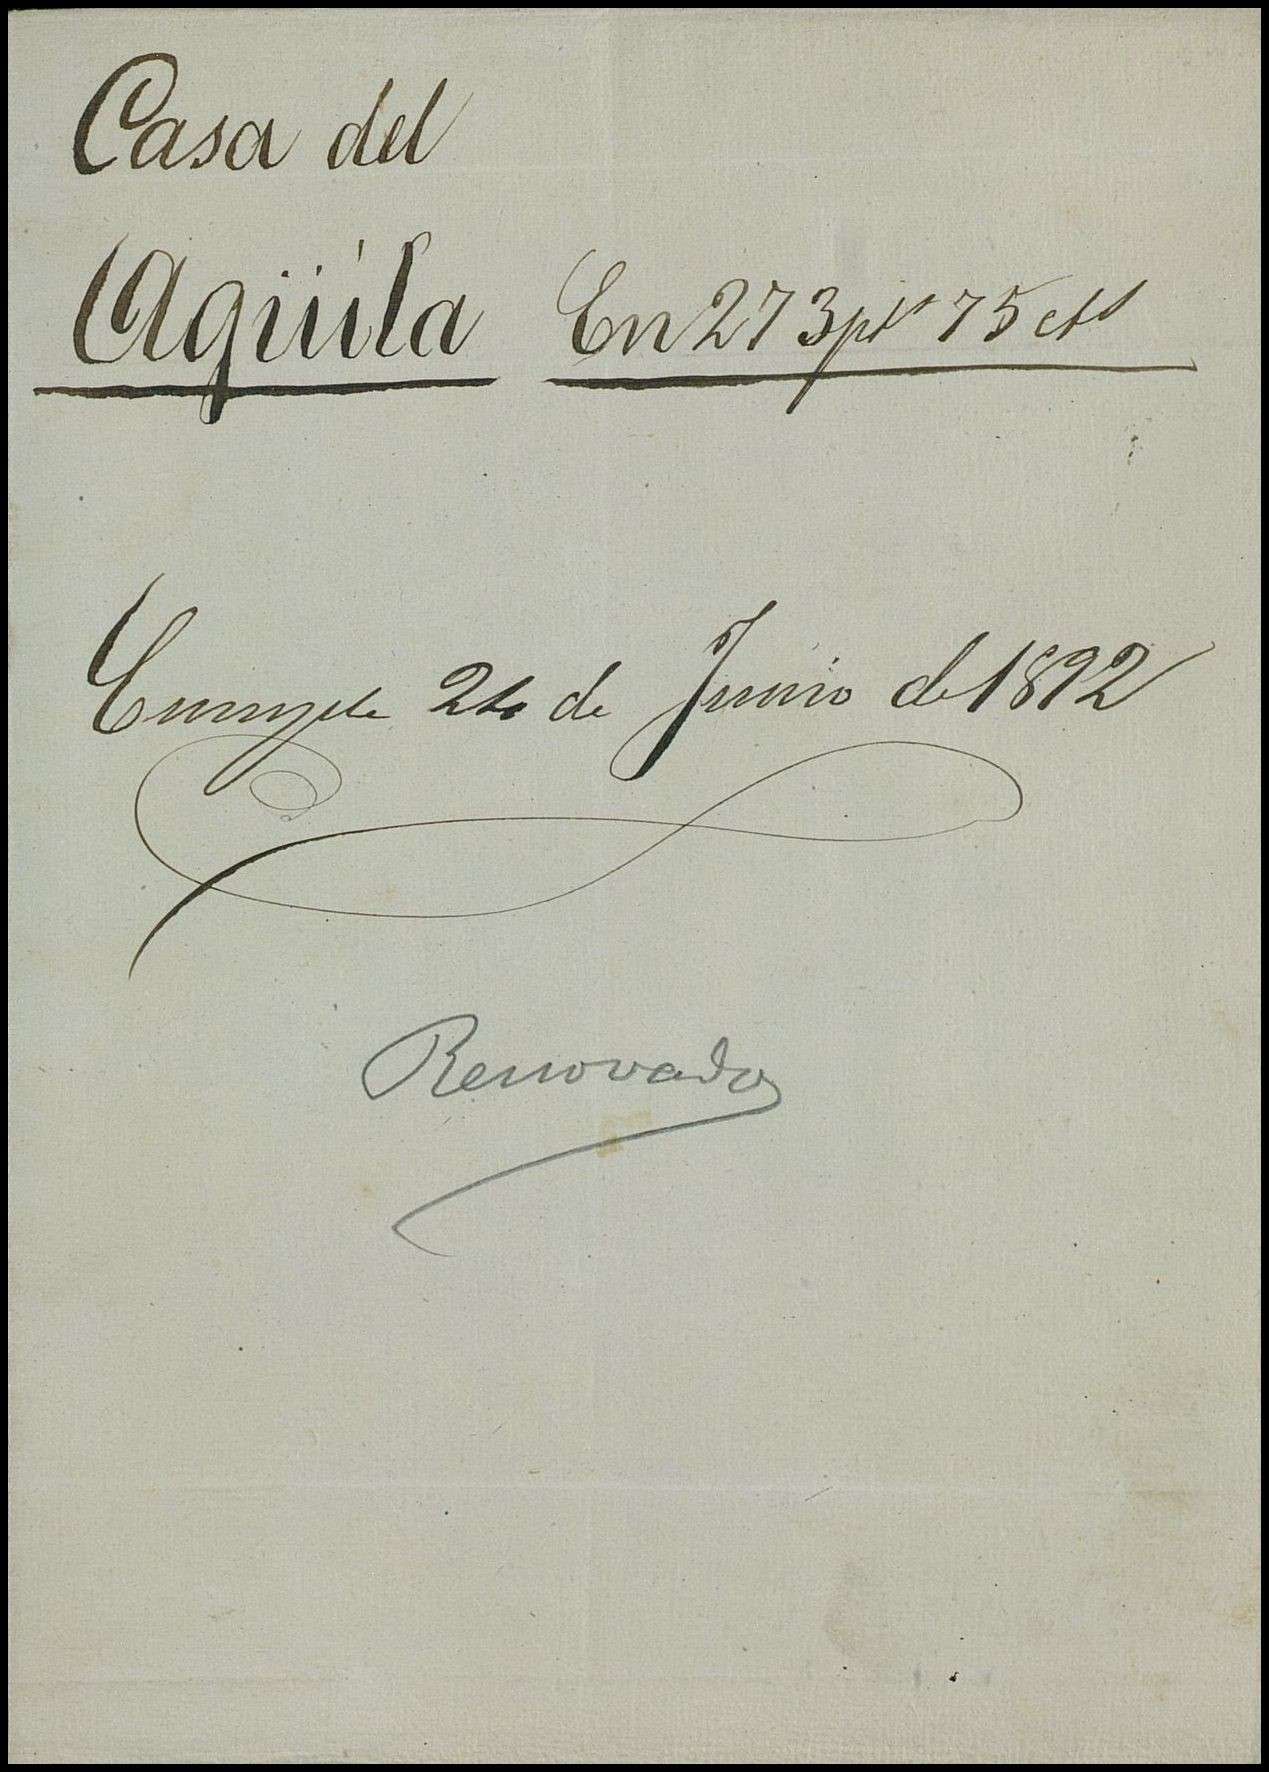 Casa del
Agüila En 273 pts 75 cts
Cumple 24 de Junio de 1892
Renovado